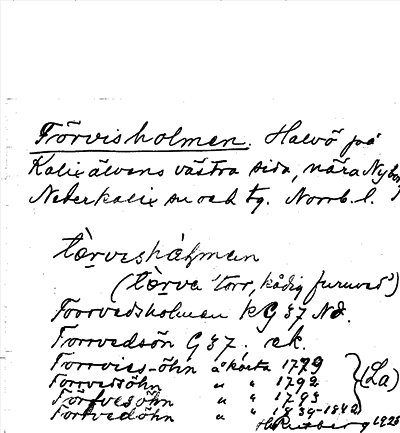 Törvisholmen. Halvö på
Kalixälvens västra sida, nära Nyborg
Nederkalix sn och tg. Norrb. l.
tèrvishàḷman
(tèrva 'torr, kådig furuved')
Toorvedsholmen KG 37 Nd.
Torrvedsön G 37, ek.
Torrviss-öhn å karta 1779
Torrvesöhn " " 1792
Törfvesöhn " " 1793
Torrvedöhn " " 1839-1842
(La)
1925